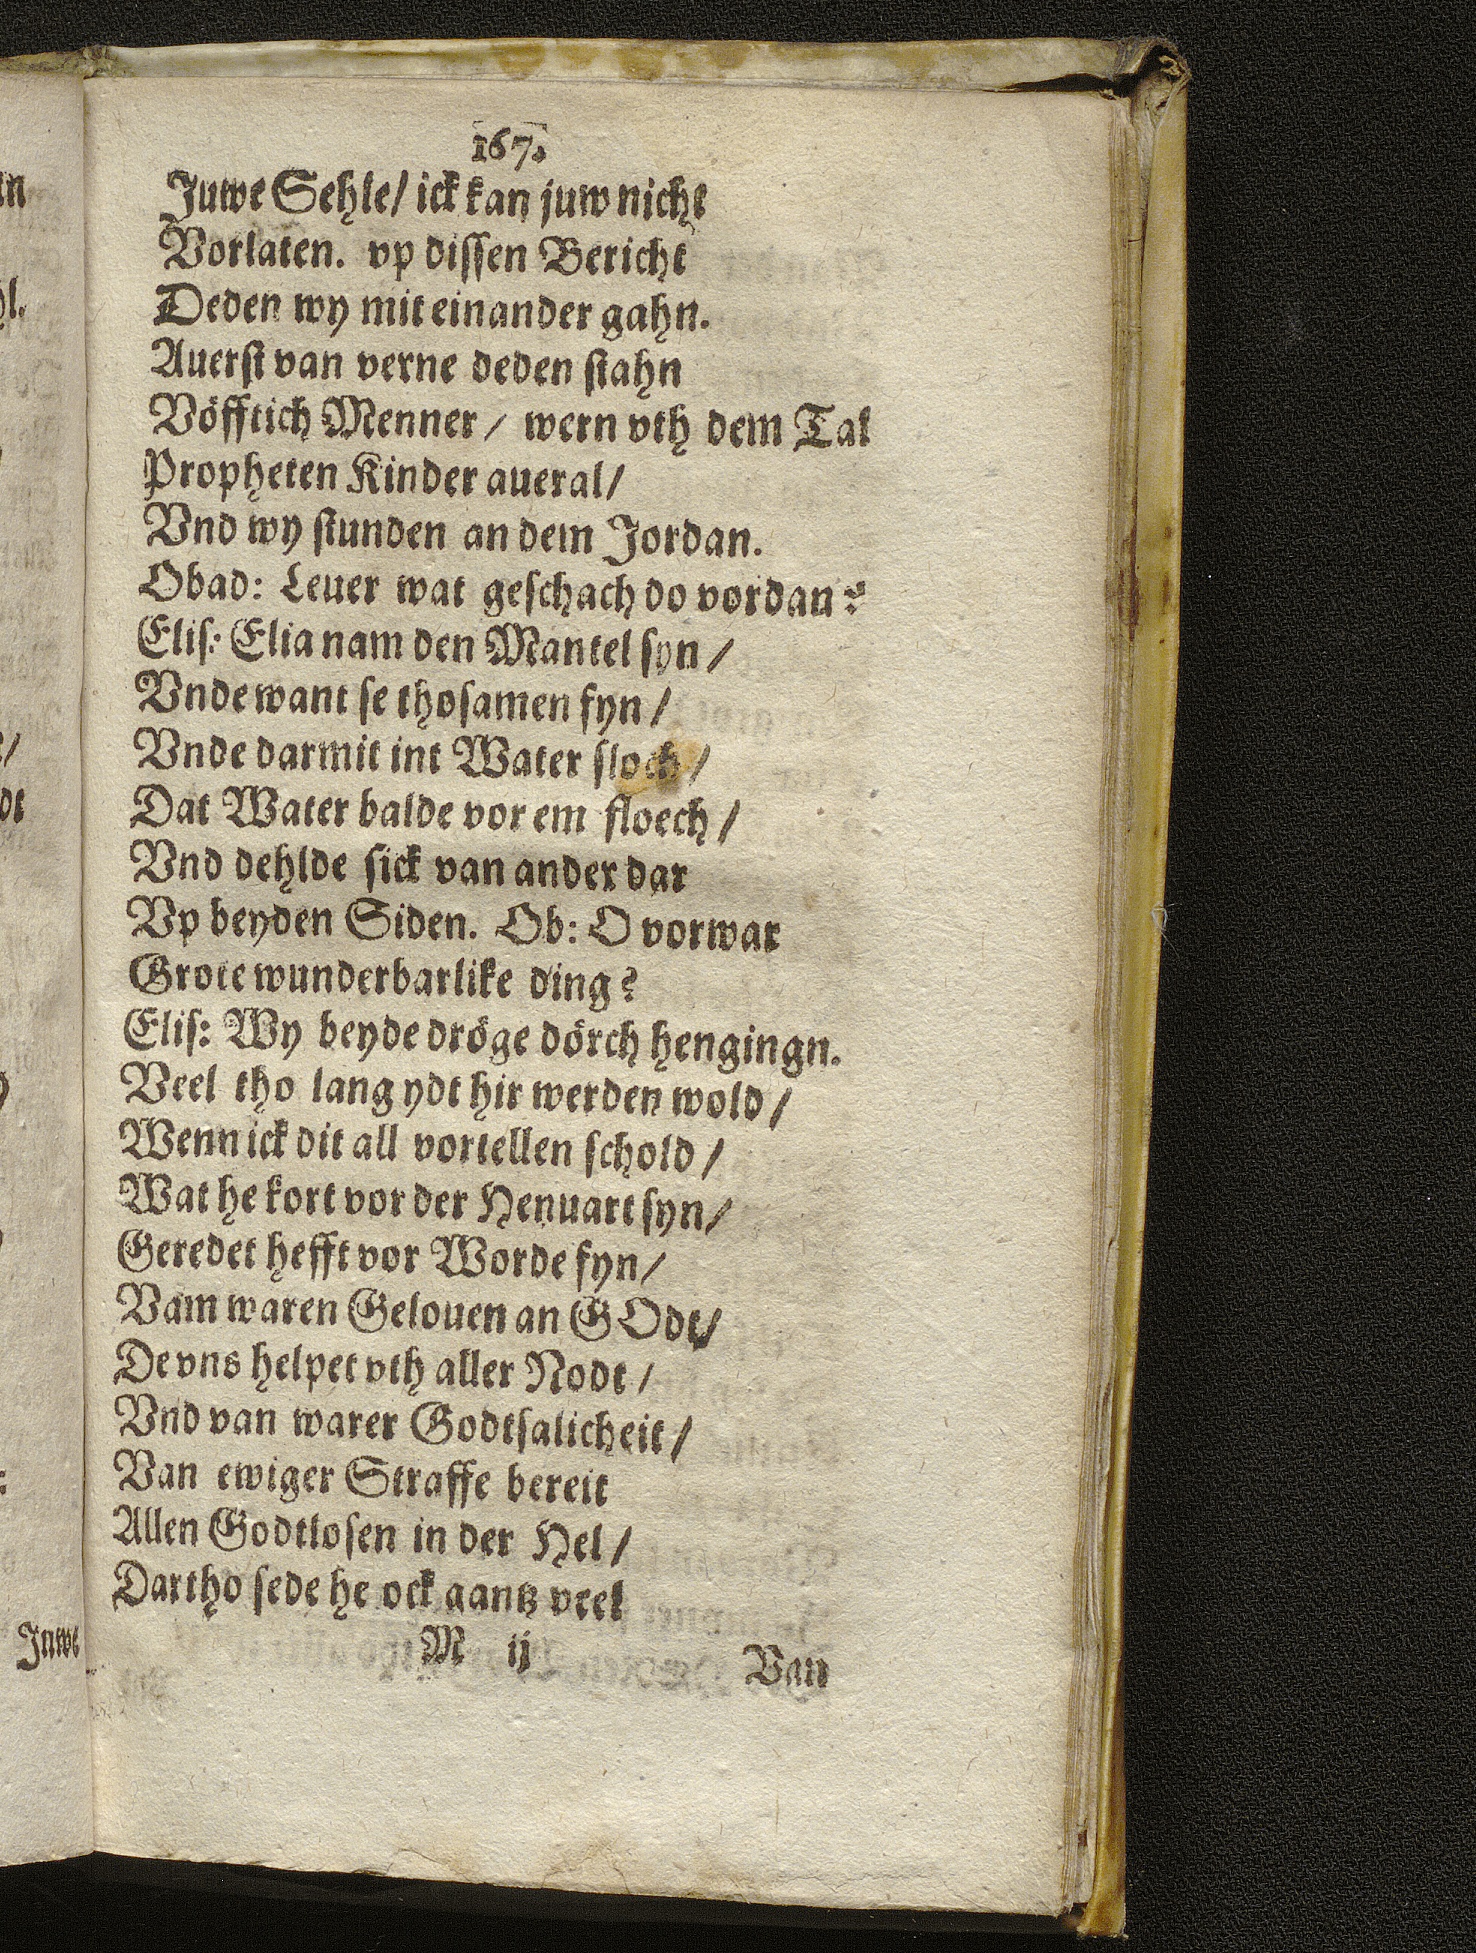 167.
Juwe Sehle/ ick kan juw nicht
Vorlaten. vp dissen Bericht
Deden wy mit einander gahn.
Auerst van verne deden stahn
Vöfftich Menner/ wern vth dem Tal
Propheten Kinder aueral/
Vnd wy stunden an dem Jordan.
Obad: Leuer wat geschach do vordan?
Elis: Elia nam den Mantel syn/
Vnde want se thosamen fyn/
Vnde darmit int Water sloch/
Dat Water balde vor em floech/
Vnd dehlde sick van ander dar
Vp beyden Siden. Ob: O vorwar
Grote wunderbarlike ding?
Elis: Wy beyde dröge dörch hengingn.
Veel tho lang ydt hir werden wold/
Wenn ick dit all vortellen schold/
Wat he kort vor der Henuart syn/
Geredet hefft vor Worde fyn/
Vam waren Gelouen an GOdt/
De vns helpet vth aller Nodt/
Vnd van warer Godtsalicheit/
Van ewiger Straffe bereit
Allen Godtlosen in der Hel/
Dartho sede he ock gantz veel
M ij
Van
Juwe